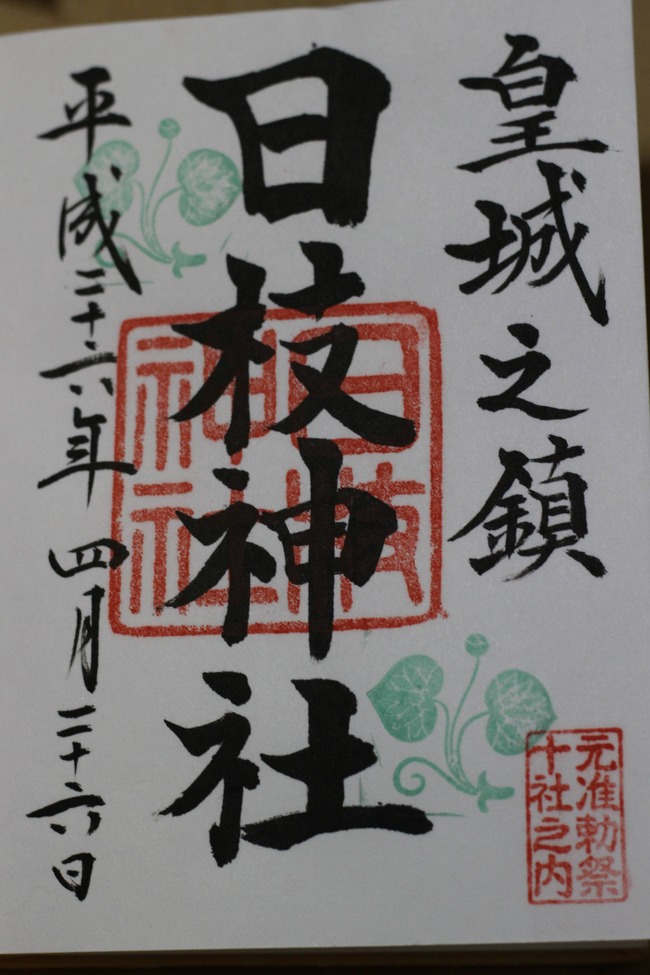 皇城之鎮
日枝神社
平成二十六年四月二十六日
日枝
神社
元准勅祭
十社之内